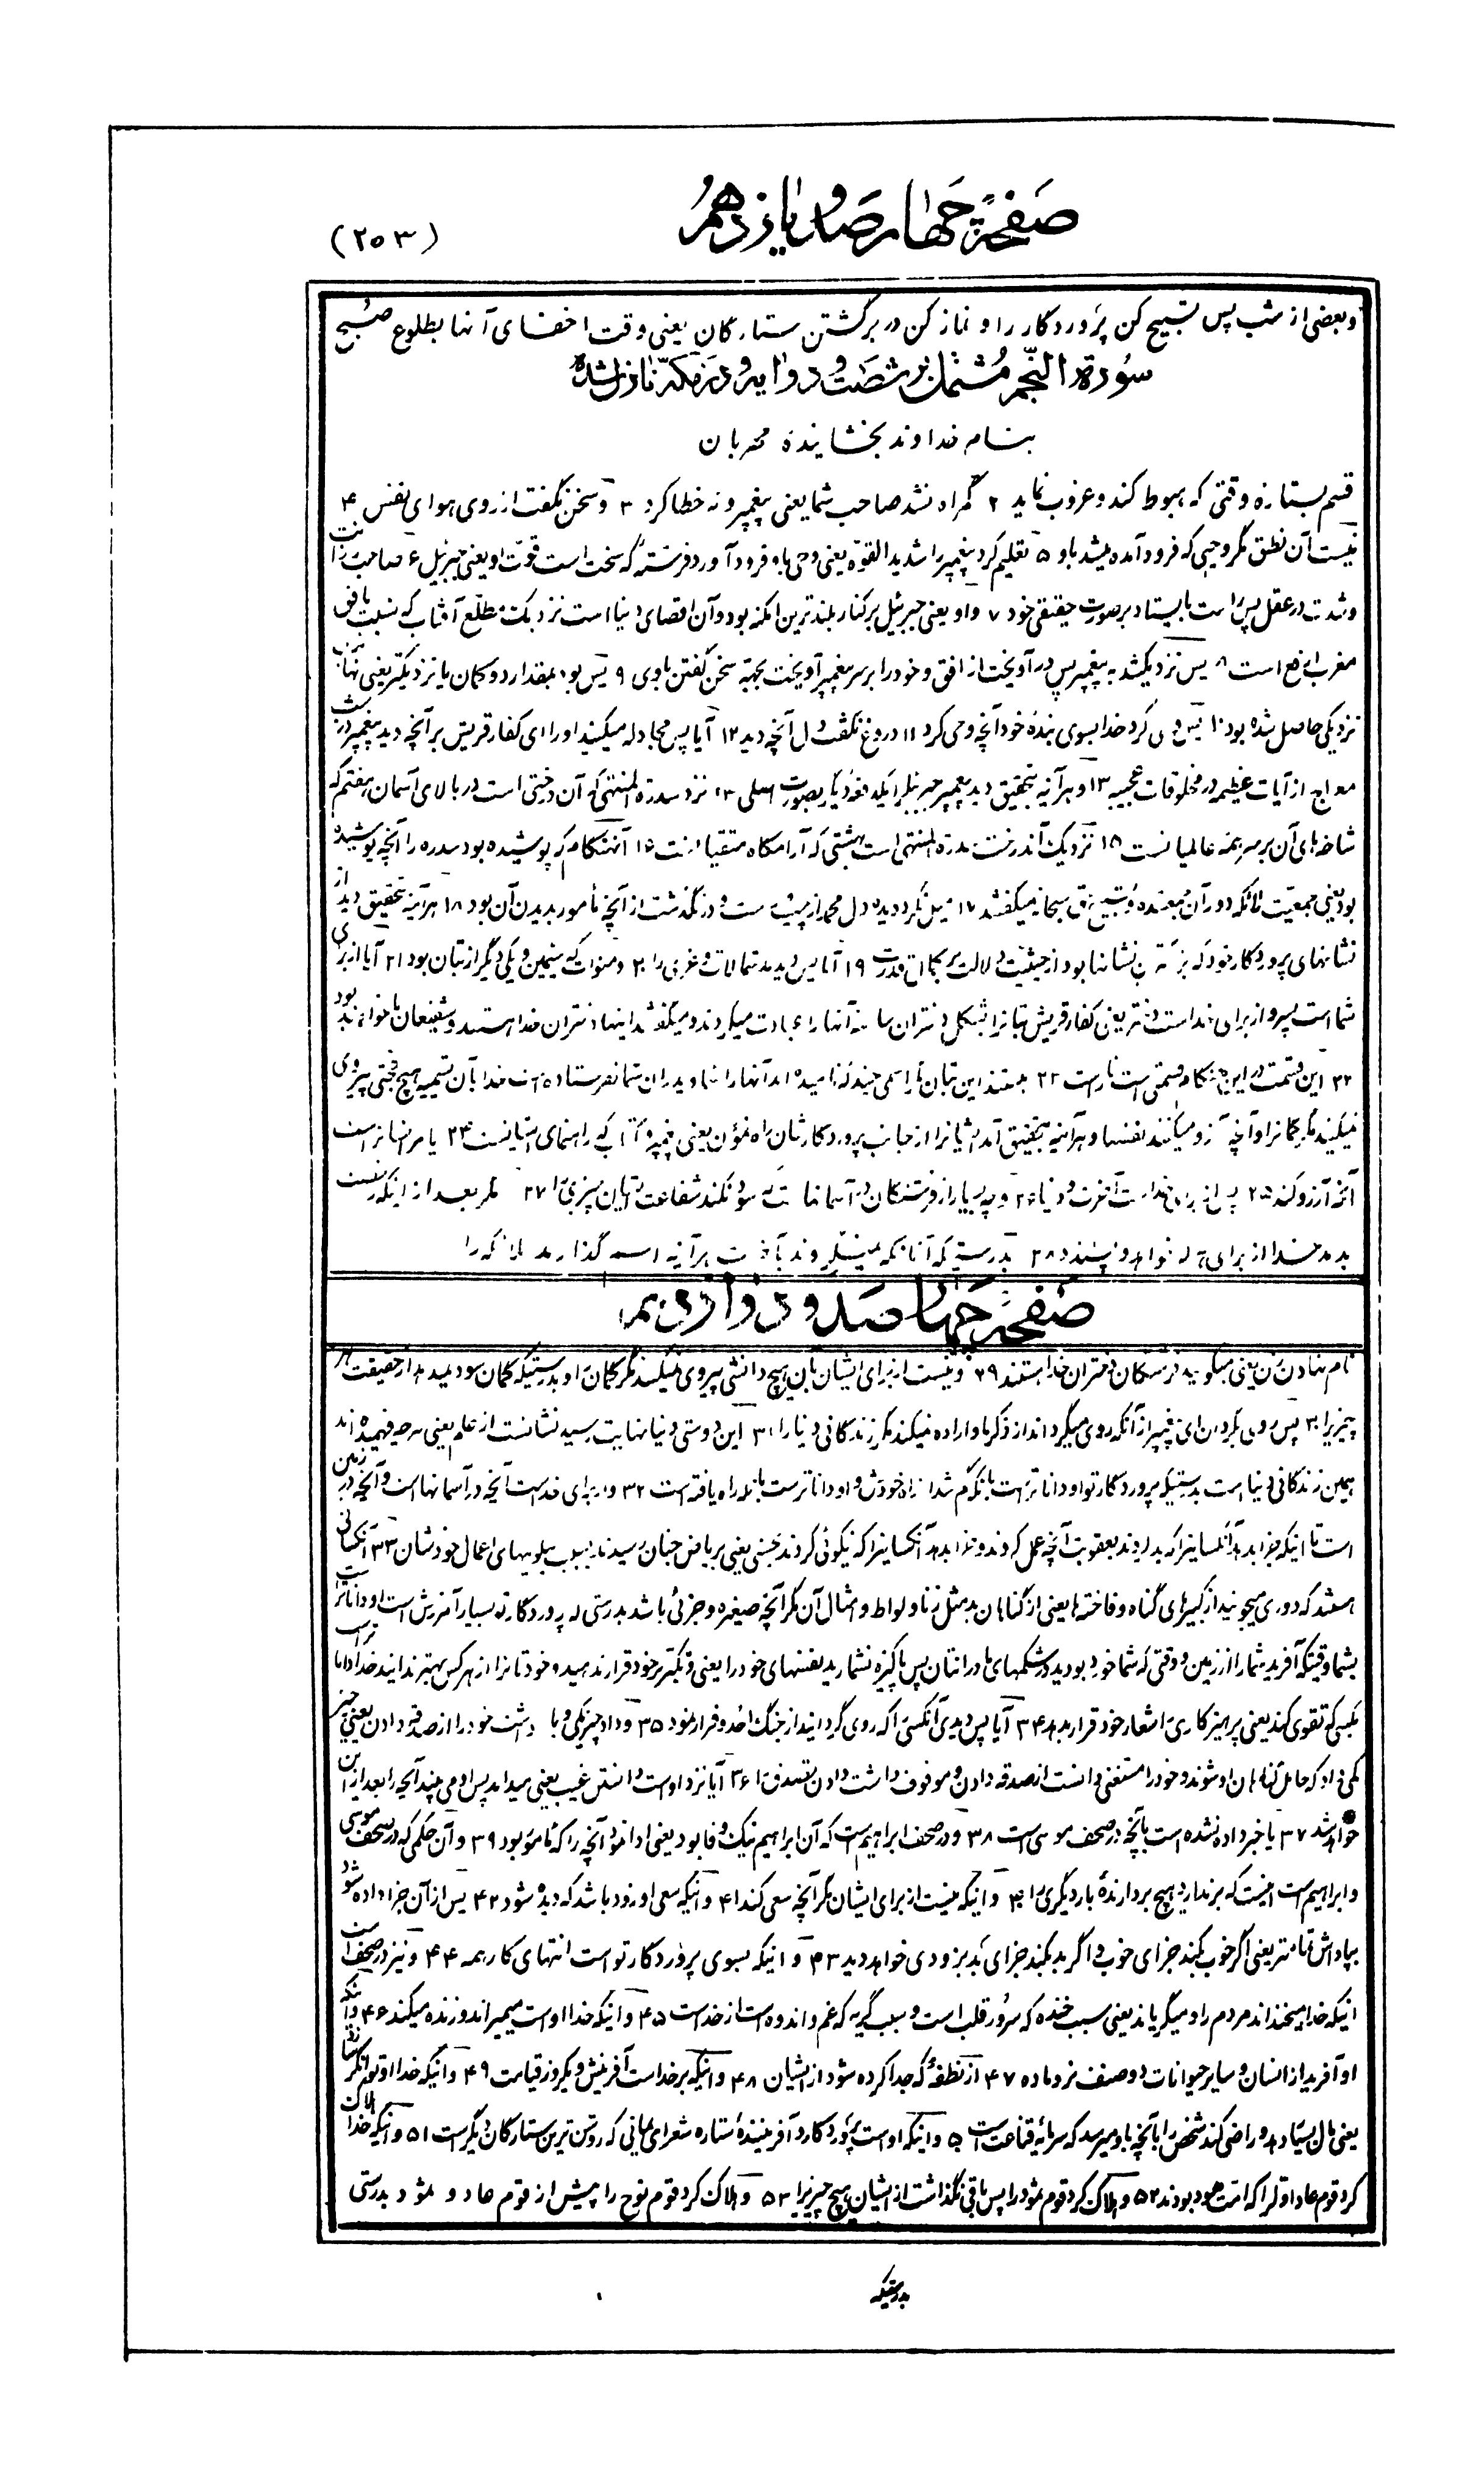 صفحهٔ چهار صد و یازدهم
(۲۰۳)
و بعضی از شب پس تسبیح کن پروردکار را و نماز کن در برگشتن ستارکان یعنی وقت اخفای آنها بطلوع صبح
سورة النّجم مشتمل بر شصت و دو ایه و در مکّه نازل شده
بنام خداوند بخشاینده مهربان
قسم بستاره وقتی که هبوط کند و غروب نماید ۲ گمراه نشد صاحب شما یعنی پیغمبر و نه خطا کرد ۳ و سخن نگفت از روی هوای نفس ۴
نیست آن نطق مگر وحیی که فرود آمده میشد باو ۵ تعلیم کرد پیغمبر را شدید القوّه یعنی وحی باو فرود آورد فرشتهٔ که سخت است قوّت او یعنی جبرئیل ۶ صاحب
و شدت در عقل پس راست بایستاد بر صورت حقیقی خود ۷ و او یعنی جبرئیل بر کنار بلندترین امکنه بود و آن اقصای دنیا است نزدیک مطلع آفتاب که نسبت بافق
مغرب ارفع است ۸ پس نزدیک شد به پیغمبر پس در آویخت از افق و خود را بر سر پیغمبر آویخت بجهة سخن گفتن با وی ۹ پس بود بمقدار دو کمان یا نزدیکتر یعنی نهایت
نزدیکی حاصل شده بود ۱۰ پس وحی کرد خدا بسوی بندهٔ خود آنچه وحی کرد ۱۱ دروغ نگفت دل آنچه دید ۱۲ آیا پس مجادله میکنید او را ای کفار قریش بر آنچه دید پیغمبر در شب
معراج از آیات عظیمه در مخلوقات عجیبه ۱۳ و هرآینه بتحقیق دید پیغمبر جبرئیل را یکدفعه دیگر بصورت اصلی ۱۴ نزد سدرة المنتهی که آن درختی است در بالای آسمان هفتم که
شاخه‌های آن بر سر همه عالمیانست ۱۵ نزدیک آن درخت سدرة المنتهی است بهشتی که آرامکاه متقیانست ۱۶ آنهنکام که پوشیده بود سدره را آنچه پوشیده
بود یعنی جمعیت ملائکه دور آن بودند و تسبیح حق سبحانه میگفتند ۱۷ میل نکرد دیده دل محمد از چپ و راست و در نگذشت از آنچه مأمور بدیدن آن بود ۱۸ هرآینه بتحقیق دید از
نشانهای پروردکار خود که بزرگترین نشانها بود از حیثیت دلالت بر کمال قدرت ۱۹ آیا پس دیدید شما لات و عزی را ۲۰ و منوات که سیمین و یکی دیگر از بتان بود ۲۱ آیا از برای
شما است پسر و از برای خداست دختر یعنی کفار قریش بتانرا بشکل دختران ساخته آنها را عبادت میکردند و میگفتند اینها دختران خدا هستند و شفیعان ما خواهند بود
۲۲ این قسمت در این هنکام قسمتی است ناراست ۲۳ نیستند این بتان مگر اسمی چند که نامیده‌اید آنها را شما و پدران شما نفرستاده است خدا بآن تسمیه هیچ حجتی پیروی
نمیکنید مگر گمانرا و آنچه آرزو میکنند نفسها و هرآینه بتحقیق آمد ایشانرا از جانب پروردکارشان راه نمون یعنی پیغمبر و کتاب که راهنمای ایشانست ۲۴ یا مر انسانراست
آنچه آرزو کند ۲۵ پس از برای خداست آخرت و دنیا ۲۶ و چه بسیار از فرشتکان در آسمانها است که سود نکند شفاعت ایشان چیزی را ۲۷ مگر بعد از اینکه رخصت
بدهد خدا از برای هرکه خواهد و پسندد ۲۸ بدرستیکه آنانکه نمیگروند بآخرت هرآینه اسم گذارند ملائکه را
صفحهٔ چهار صد و دوازدهم
نام نهادن زن یعنی میگویند فرشتکان دختران خدا هستند ۲۹ و نیست از برای ایشان بآن هیچ دانشی پیروی نمیکنند مگر گمان را و بدرستیکه گمان سود نمیدهد از حقیقت امر
چیزیرا ۳۰ پس روی بگردان ای پیغمبر از آنکه روی میگرداند از ذکر ما و اراده نمیکند مگر زندکانی دنیا را ۳۱ این دوستی دنیا نهایت رسیدنشانست از علم یعنی هرچه فهمیده‌اند
همین زندکانی دنیا است بدرستیکه پروردکار تو او داناتر است بآنکه گم شد از راه خودش و او داناتر است بآنکه راه یافته است ۳۲ و از برای خداست آنچه در آسمانها است و آنچه در زمین
است تا اینکه جزا بدهد آنکسانیرا که بد کردند بعقوبت آنچه عمل کردند و جزا بدهد آنکسانیرا که نیکوئی کردند بحسنی یعنی بریاض جنان رسیدند بسبب نیکوییهای اعمال خودشان ۳۳ آنکسانی
هستند که دوری میجویند از کبیرهای گناه و فاحشه‌ها یعنی از گناهان بد مثل زنا و لواط و امثال آن مگر آنچه صغیره و جزئی باشد بدرستی که پروردکار تو بسیار آمرزش است او داناتر است
بشما وقتیکه آفرید شما را از زمین و وقتی که شما خورد بودید در شکمهای مادرانتان پس پاکیزه نشمارید نفسهای خود را یعنی فخر و تکبّر بر خود قرار ندهید و خودتانرا از هر کس بهتر ندانید خدا داناتر است
بکسی که تقوی کند یعنی پرهیزکاری را شعار خود قرار بدهد ۳۴ آیا پس دیدی آنکسی را که روی گردانید از جنگ احد و فرار نمود ۳۵ و داد چیز کمی و باز داشت خود را از صدقه دادن یعنی چیز
کمی داد که حامل گناهان او شوند و خود را مستغنی دانست از صدقه دادن و موقوف داشت دادن تصدق را ۳۶ آیا نزد اوست دانستن غیب یعنی میداند پس او می‌بیند آنچه را بعد از این
خواهد شد ۳۷ یا خبر داده نشده است بآنچه در صحف موسی است ۳۸ و در صحف ابراهیم است که آن ابراهیم نیک وفا بود یعنی ادا نمود آنچه را که مأمور بود ۳۹ و آن حکمی که در صحف موسی
و ابراهیم است اینست که برندارد هیچ بردارندهٔ بار دیگری را ۴۰ و اینکه نیست از برای انسان مگر آنچه سعی کند ۴۱ و اینکه سعی او زود باشد که دیده شود ۴۲ پس از آن جزا داده شود
بپاداش تمامتر یعنی اگر خوب بکند جزای خوب و اگر بد بکند جزای بد بزودی خواهد دید ۴۳ و اینکه بسوی پروردکار تو است انتهای کار همه ۴۴ و نیز در صحف است
اینکه خدا میخنداند مردم را و میگریاند یعنی سبب خنده که سرور قلب است و سبب گریه که غم و اندوه است از خداست ۴۵ و اینکه خدا اوست میمیراند و زنده میکند ۴۶ و اینکه
او آفرید از انسان و سایر حیوانات دو صنف نر و ماده ۴۷ از نطفهٔ که جدا کرده شود از ایشان ۴۸ و اینکه بر خداست آفرینش دیگر روز قیامت ۴۹ و اینکه خدا او توانگر
یعنی مال بسیار دهد و راضی کند شخص را بآنچه باو میرسد که سرمایهٔ قناعت است ۵۰ و اینکه اوست پروردکار و آفرینندهٔ ستاره شعرای یمانی که روشن ترین ستارکان دیگر است ۵۱ و اینکه خدا هلاک
کرد قوم عاد اول را که امت هود بودند ۵۲ و هلاک کرد قوم ثمود را پس باقی نگذاشت از ایشان هیچ چیزیرا ۵۳ و هلاک کرد قوم نوح را پیش از قوم عاد و ثمود بدرستی
بدرستیکه